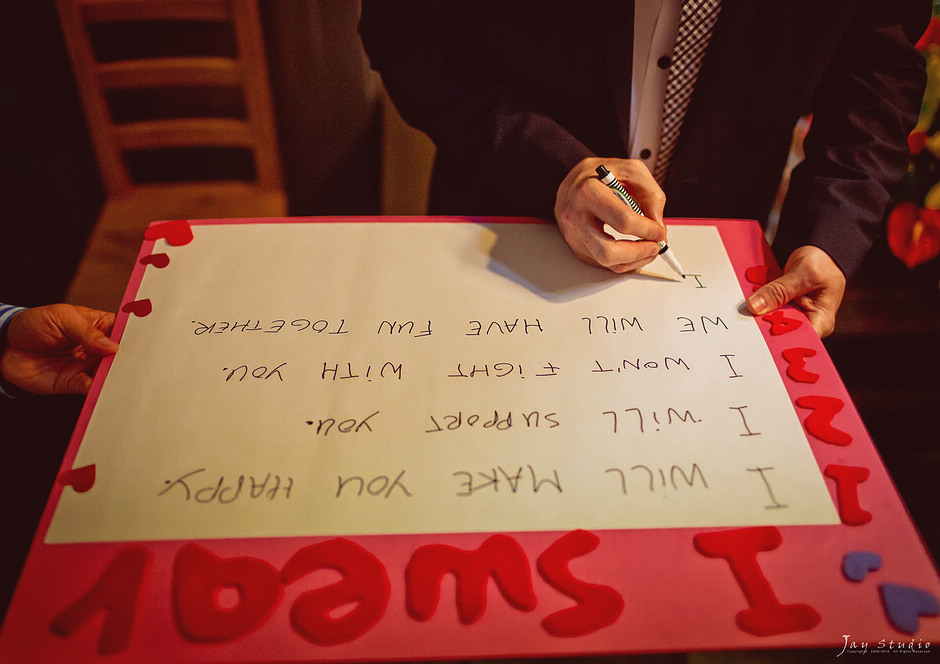 I swear
I WILL MAKE YOU HAPPY.
I WILL SUPPORT YOU.
I WON'T FIGHT WITH YOU.
WE WILL HAVE FUN TOGETHER.
I
Jay Studio